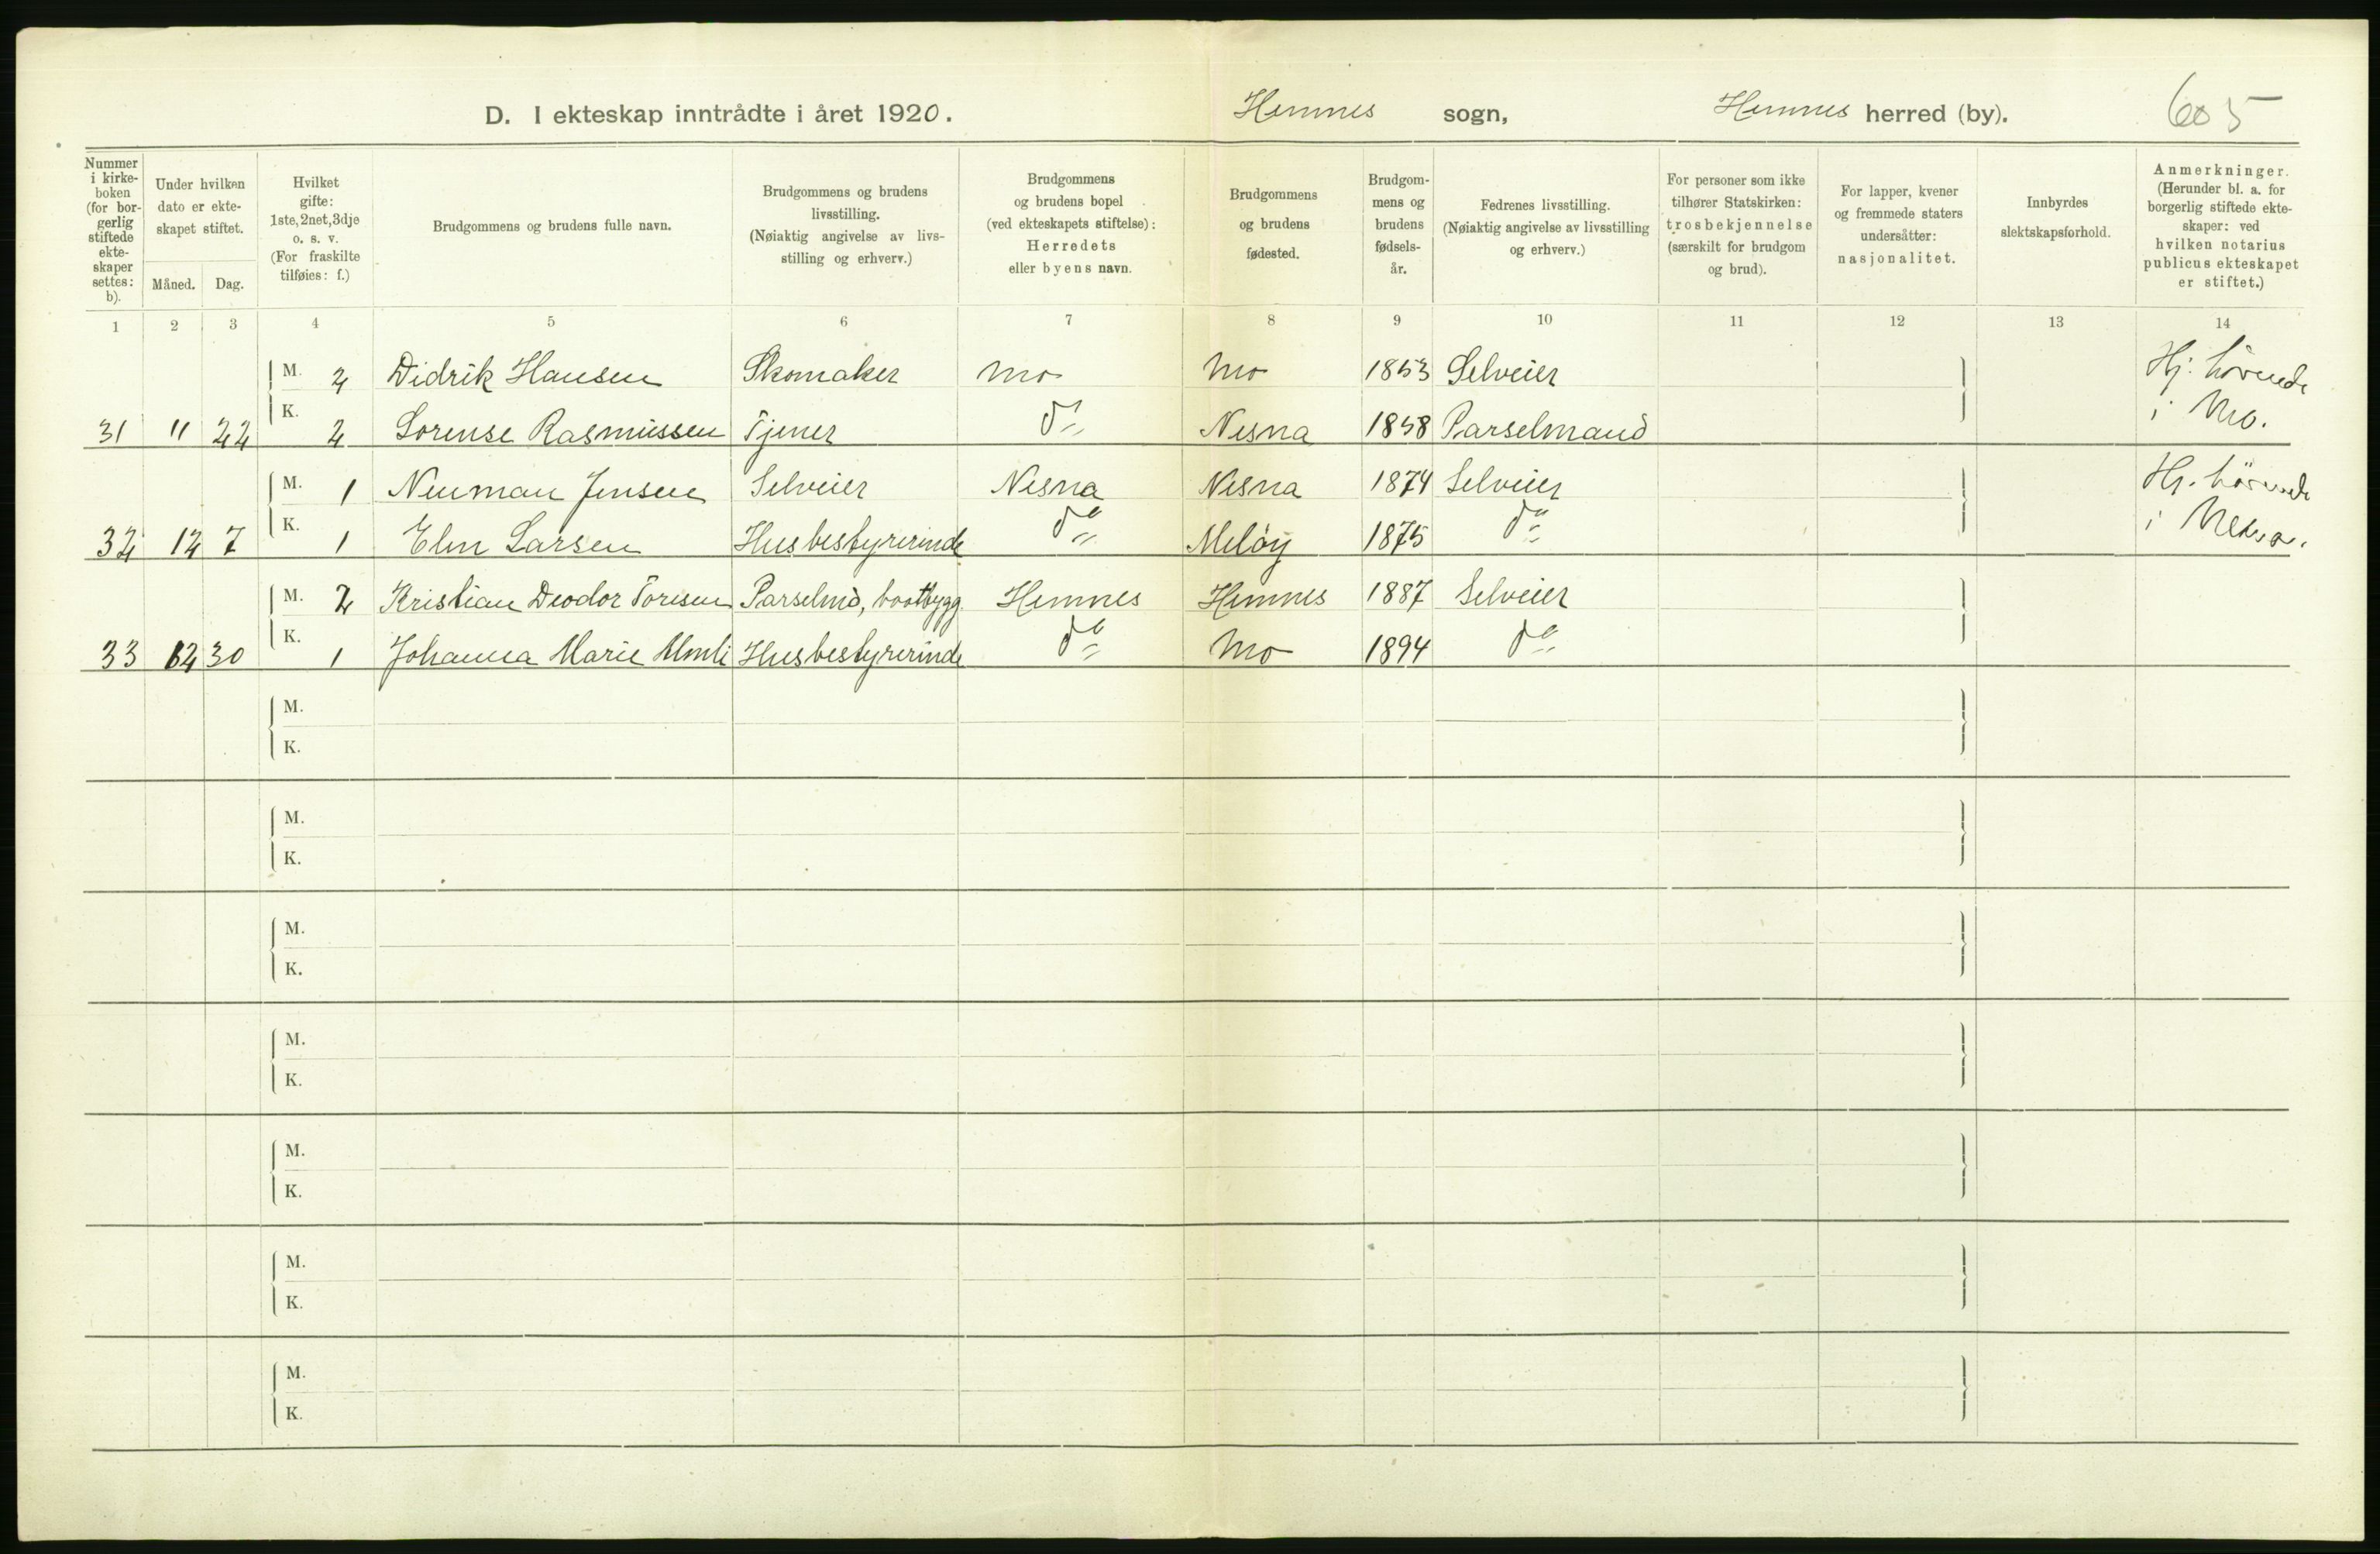 D. I ekteskap inntrådte i året 1920. Hemnes sogn, Hemnes herred (by). 605
Nummer i kirke-boken (for bor-gerlig stiftede ekte-skaper settes: b).
Under hvilken dato er ekte-skapet stiftet.
Måned. Dag.
Hvilket gifte: 1ste, 2net, 3dje o. s. v. (For fraskilte tilføies: f.)
Brudgommens og brudens fulle navn.
Brudgommens og brudens livsstilling. (Nøiaktig angivelse av livs-stilling og erhverv.)
Brudgommens og brudens bopel (ved ekteskapets stiftelse): Herredets eller byens navn.
Brudgommens og brudens fødested.
Brudgom-mens og brudens fødsels-år.
Fedrenes livsstilling. (Nøiaktig angivelse av livsstilling og erhverv.)
For personer som ikke tilhører Statskirken: trosbekjennelse (særskilt for brudgom og brud).
For lapper, kvener og fremmede staters undersåtter: nasjonalitet.
Innbyrdes slektskapsforhold.
Anmerkninger. (Herunder bl. a. for borgerlig stiftede ekte-skaper: ved hvilken notarius publicus ekteskapet er stiftet.)
1 2 3 4 5 6 7 8 9 10 11 12 13 14
M. 2 Didrik Hansen Skomaker Mo Mo 1853 Selveier Hj. hörende
31 11 22 K. 2 Lorense Rasmussen Tjener do Nesna 1858 Parselmand i Mo.
M. 1 Neuman Jensen Selveier Nesna Nesna 1874 Selveier Hj. hörende
32 12 7 K. 1 Elen Larsen Husbestyrerinde do Melöy 1875 do i Nesna.
M. 2 Kristian Deodor Toresen Parselmd, baatbygg. Hemnes Hemnes 1887 Selveier
33 12 30 K. 1 Johanna Marie Umli Husbestyrerinde do Mo 1894 do
M.
K.
M.
K.
M.
K.
M.
K.
M.
K.
M.
K.
M.
K.